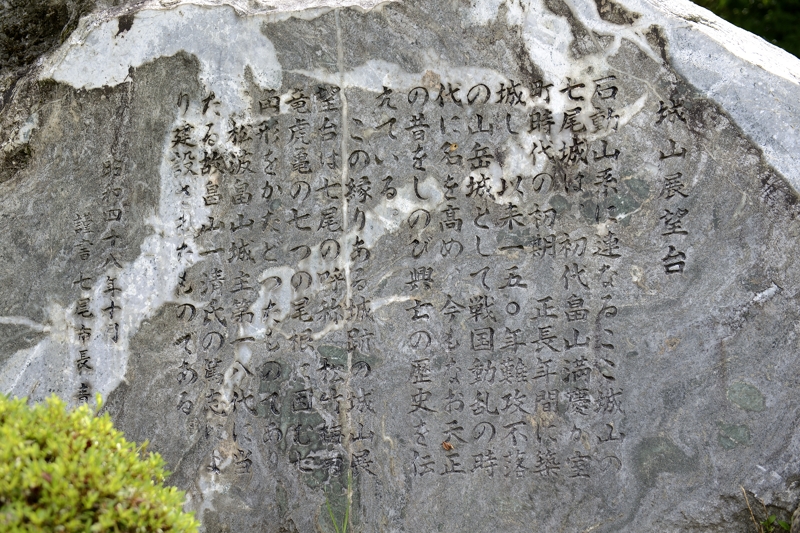 城山展望台
石動山系に連なるここ城山の
七尾城は 初代畠山満慶が室
町時代の初期 正長年間に築
城し 以来一五〇年難攻不落
の山岳城として戦国動乱の時
代に名を高め 今もなお天正
の昔をしのび興亡の歴史を伝
えている
この縁りある城跡の城山展
望台は七尾の呼称 松竹梅
竜虎亀の七つの尾根に因む七
凸形をかたどったものであり
松波畠山城主第一八代に当
たる故畠山一清氏の篤志によ
り建設されたものである
昭和四十八年十月
謹書 七尾市長